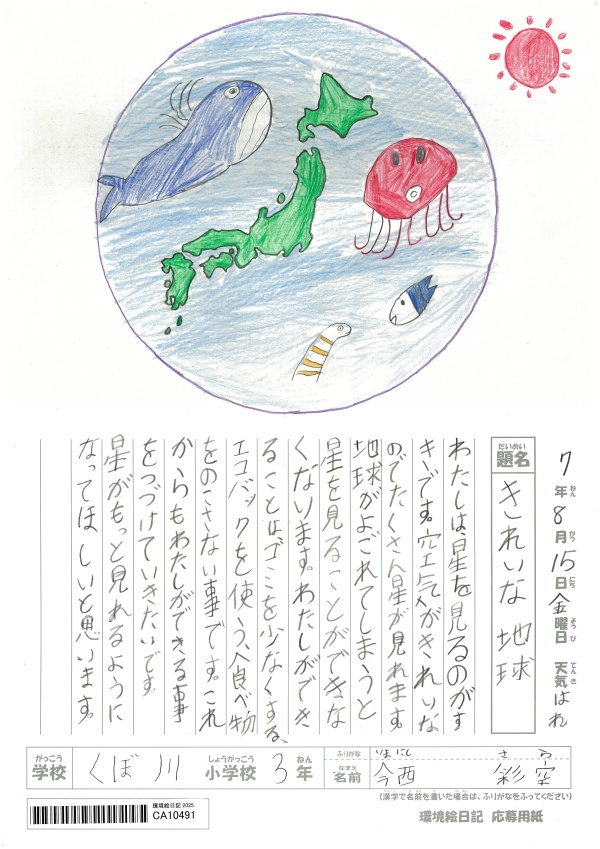 7年8月15日金曜日 天気はれ
ねん がつ にち ようび てんき
だいめい
題名 きれいな地球
わたしは、星を見るのがす
きです。空気がきれいな
のでたくさん星が見れます。
地球がよごれてしまうと
星を見ることができな
くなります。わたしができ
ることはゴミを少なくする、
エコバックを使う、食べ物
をのこさない事です。これ
からもわたしができる事
をつづけていきたいです
星がもっと見れるように
なってほしいと思います。
がっこう しょうがっこう ねん
学校 くぼ川 小学校 3年
ふりがな いまにし さら
なまえ
名前 今西 彩空
(漢字で名前を書いた場合は、ふりがなをふってください)
環境絵日記 2025
CA10491
環境絵日記 応募用紙